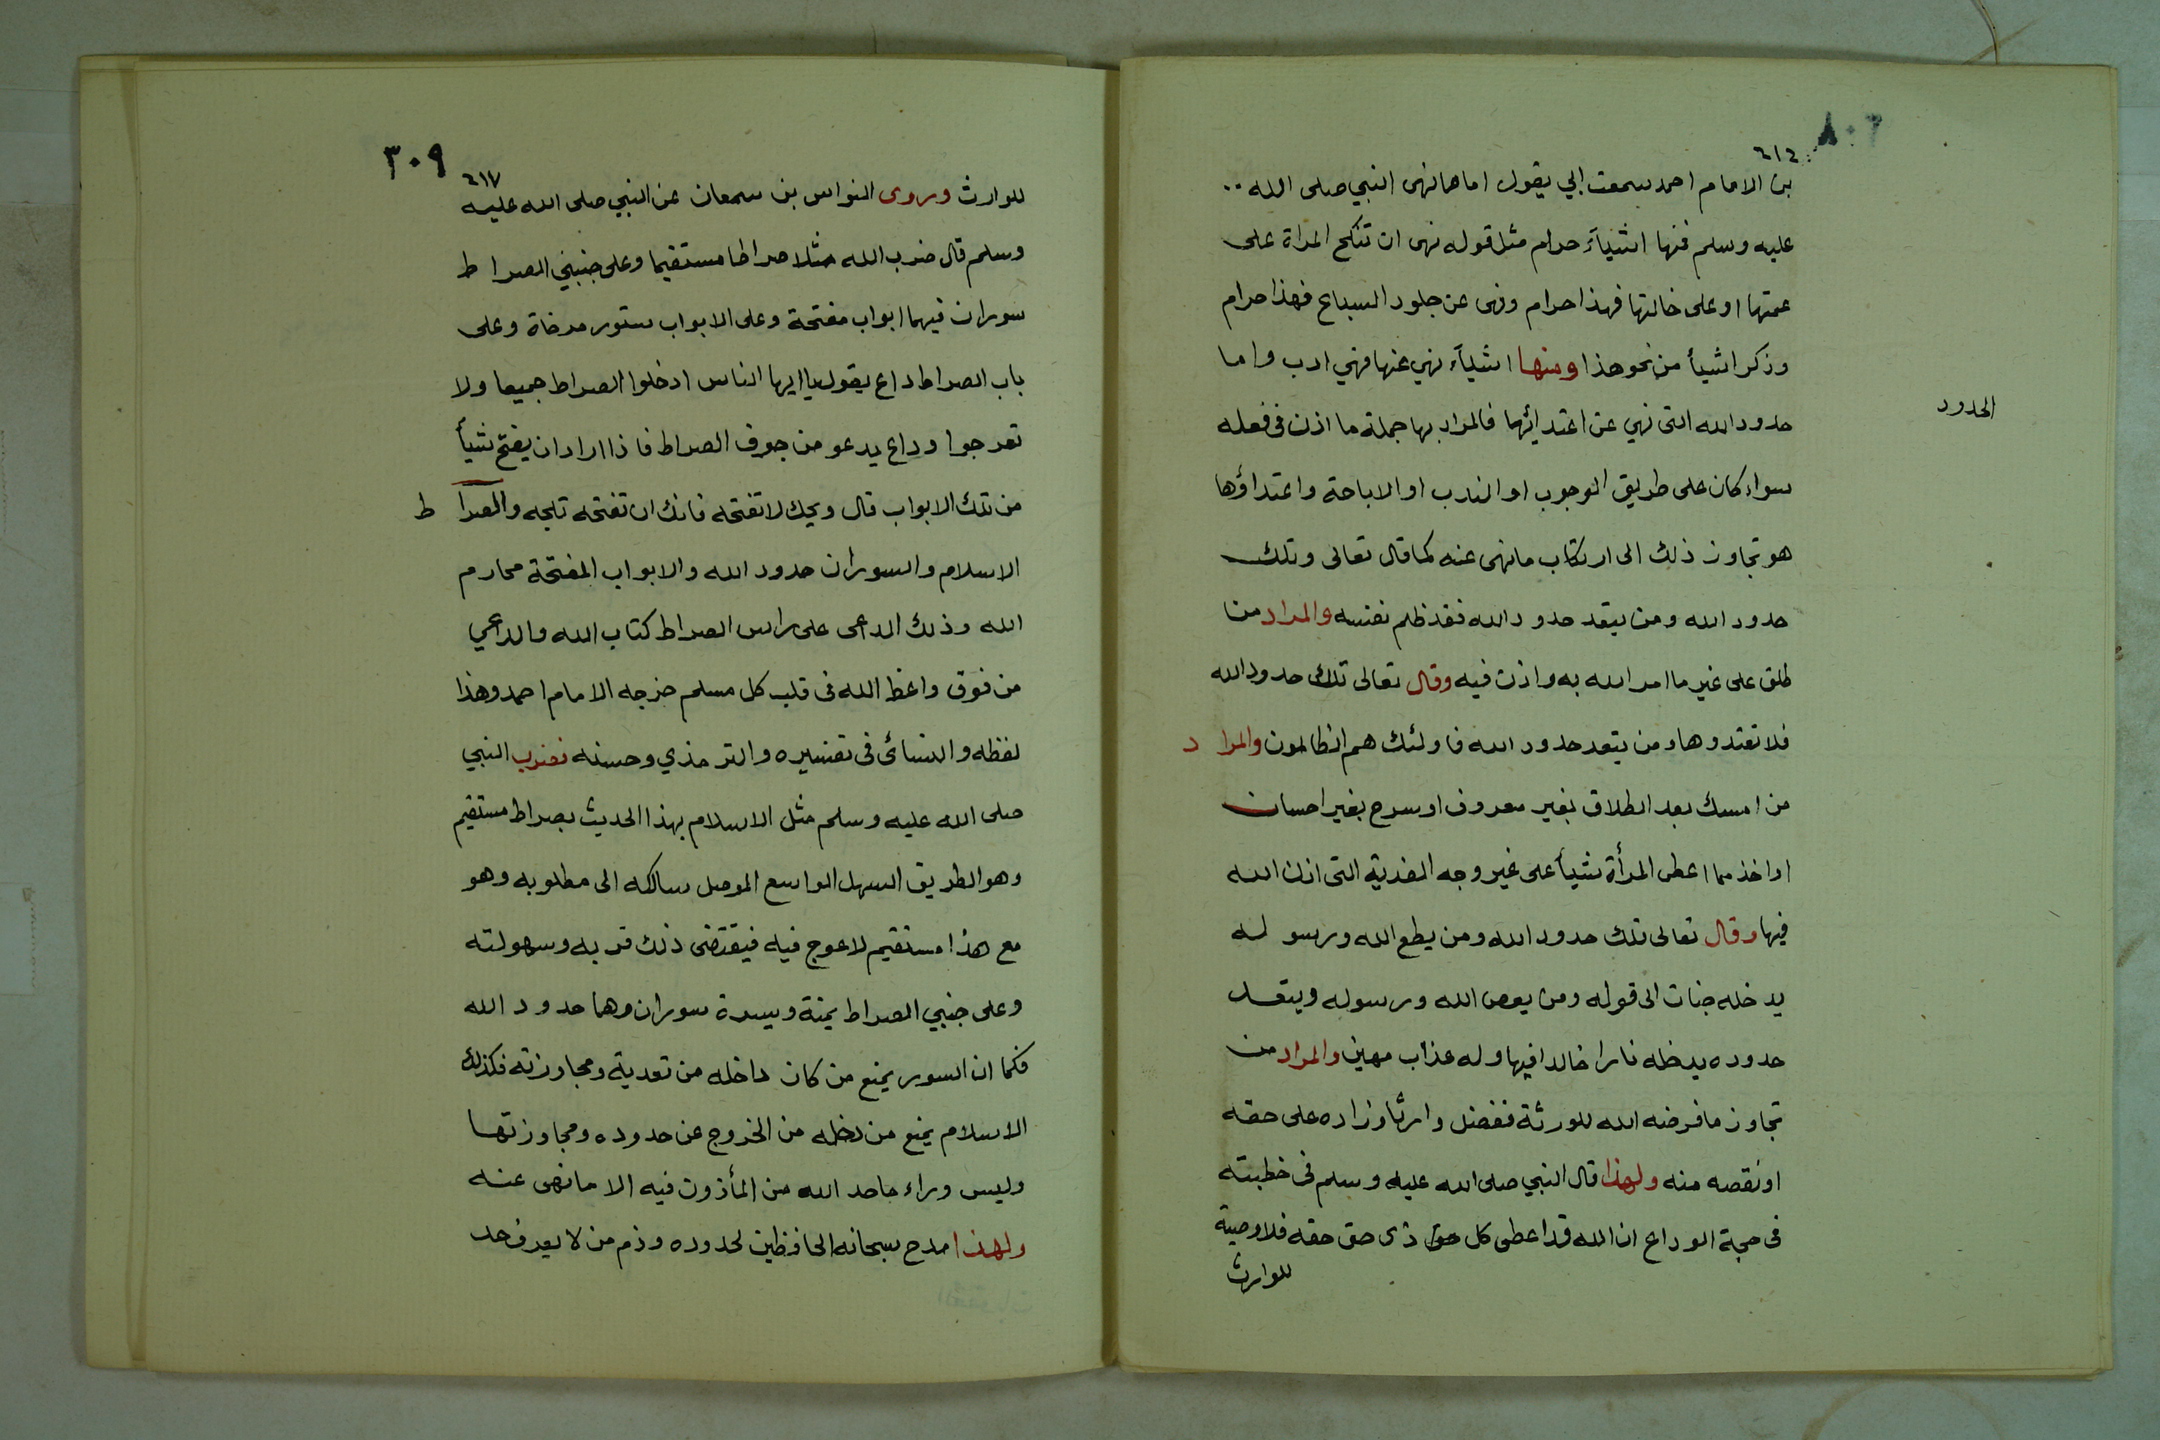 ٨٠٣
٦١٤
بن الامام احمد سمعت ابي يقول اما ما نهى النبي صلى الله
عليه وسلم فمنها اشيآء حرام مثل قوله نهى ان تنكح المراة على
عمتها او على خالتها فهذا حرام ونهى عن جلود السباع فهذا حرام
وذكر اشيأ من نحو هذا ومنها اشيآء نهي عنها فهي ادب واما
الحدود
حدود الله التى نهي عن اعتدائها فالمراد بها جملة ما اذن فى فعله
سواء كان على طريق الوجوب او الندب او الاباحة واعتداؤها
هو تجاوز ذلك الى ارتكاب ما نهى عنه كما قال تعالى وتلك
حدود الله ومن يتعد حدود الله فقد ظلم نفسه والمراد من
طلق على غير ما امر الله به واذن فيه وقال تعالى تلك حدود الله
فلا تعتدوها ومن يتعد حدود الله فاولئك هم الظالمون والمراد
من امسك بعد الطلاق بغير معروف او سرح بغير احسان
او اخذ مما اعطى المرأة شيأ على غير وجه الفدية التى اذن الله
فيها وقال تعالى تلك حدود الله ومن يطع الله ورسوله
يدخله جنات الى قوله ومن يعص الله ورسوله ويتعد
حدوده يدخله نارا خالدا فيها وله عذاب مهين والمراد من
تجاوز ما فرضه الله للورثة ففضل وارثا وزاده على حقه
او نقصه منه ولهذا قال النبي صلى الله عليه وسلم فى خطبته
فى حجة الوداع ان الله قد اعطى كل حق ذى حق حقه فلا وصية
للوارث
٣٠٩
٦١٧
للوارث وروى النواس بن سمعان عن النبي صلى الله عليه
وسلم قال ضرب الله مثلا صراطا مستقيما وعلى جنبتي الصراط
سوران فيهما ابواب مفتحة وعلى الابواب ستور مرخاة وعلى
باب الصراط داع يقول يا ايها الناس ادخلوا الصراط جميعا ولا
تعرجوا وداع يدعو من جوف الصراط فاذا اراد ان يفتح شيأ
من تلك الابواب قال ويحك لا تفتحه فانك ان تفتحه تلجه والصراط
الاسلام والسوران حدود الله والابواب المفتحة محارم
الله وذلك الداعى على راس الصراط كتاب الله والداعي
من فوق واعظ الله فى قلب كل مسلم خرجه الامام احمد وهذا
لفظه والنسائى فى تفسيره والترمذي وحسنه فضرب النبي
صلى الله عليه وسلم مثل الاسلام بهذا الحديث بصراط مستقيم
وهو الطريق السهل الواسع الموصل سالكه الى مطلوبه وهو
مع هذا مستقيم لا عوج فيه فيقتضى ذلك قربه وسهولته
وعلى جنبي الصراط يمنة ويسرة سوران وهما حدود الله
فكما ان السور يمنع من كان داخله من تعدية ومجاوزته فكذلك
الاسلام يمنع من دخله من الخروج عن حدوده ومجاوزتها
وليس وراء ما حد الله من المأذون فيه الا ما نهى عنه
ولهذا مدح سبحانه الحافظين لحدوده وذم من لا يعرف حد